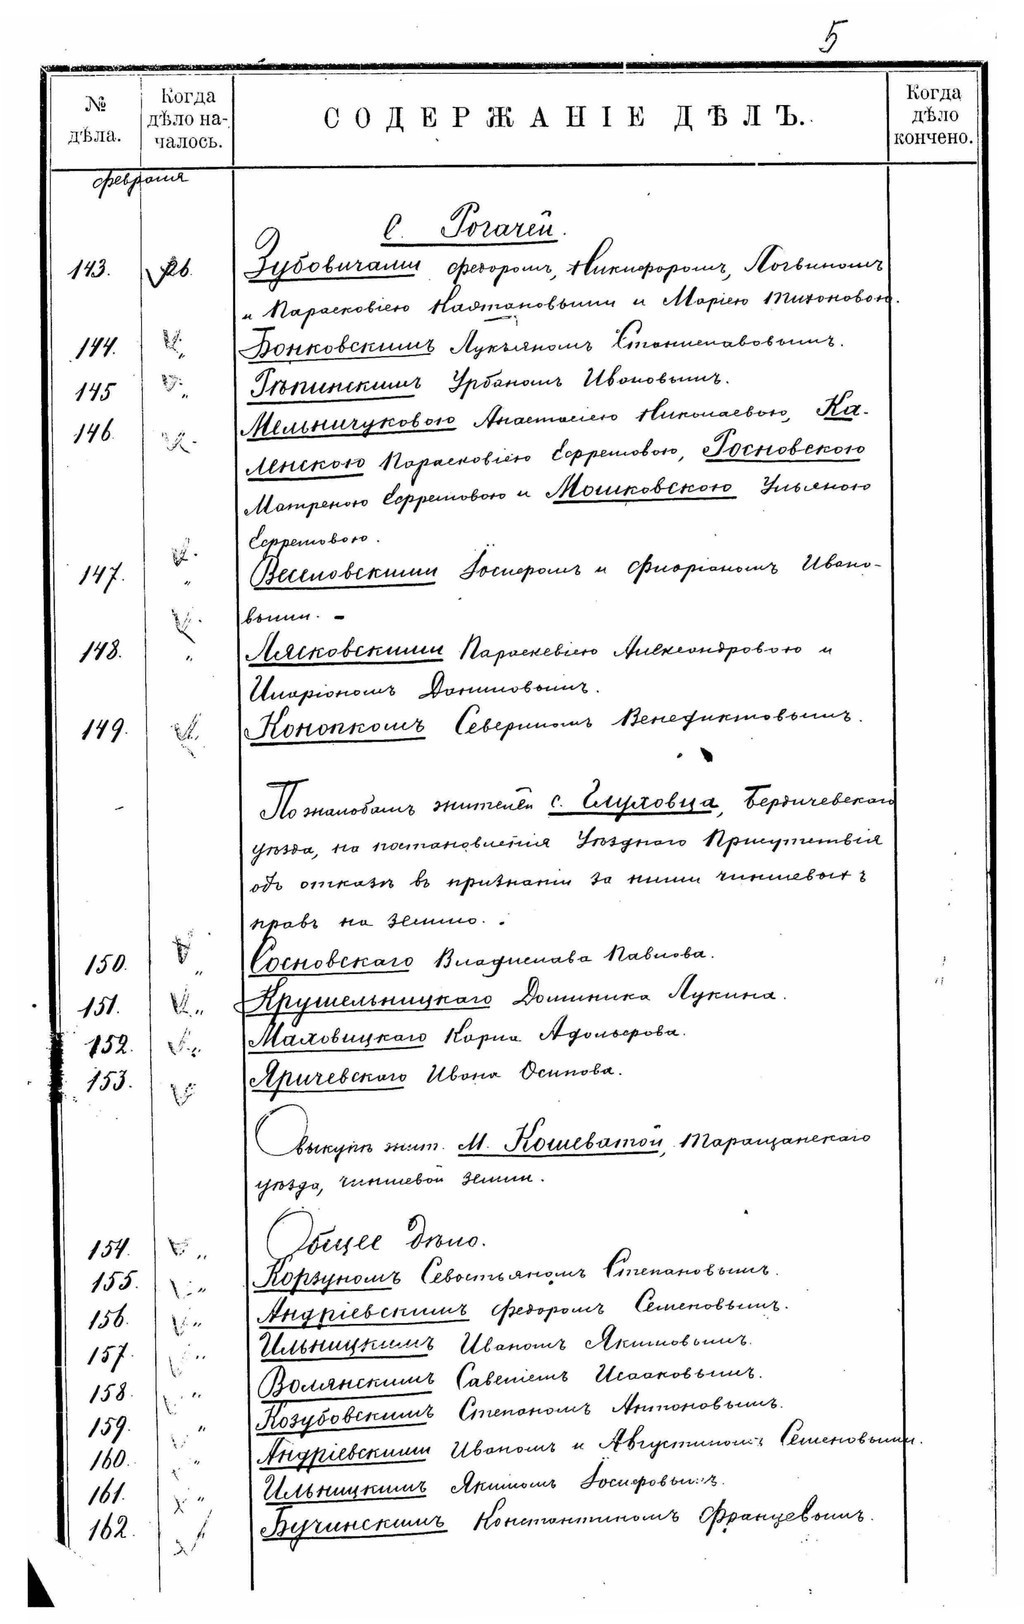 5
№ дѣла. Когда дѣло началось. СОДЕРЖАНІЕ ДѢЛЪ. Когда дѣло кончено.
февраля
С. Рогачей.
143. 26. Зубовичами Федоромъ, Никифоромъ, Логвиномъ
и Парасковіею Каэтановыми и Маріею Тихоновою.
144. " Бонковскимъ Лукьяномъ Станиславовымъ.
145 " Рѣпинскимъ Урбаномъ Ивановымъ.
146. " Мельничуковою Анастасіею Николаевою, Ка-
ленскою Парасковіею Ефремовою, Росновскою
Матреною Ефремовою и Мошковскою Ульяною
Ефремовою.
147. " Веселовскими Іосифомъ и Флоріаномъ Ивано-
выми. -
148. " Лясковскими Параскевіею Александровою и
Иларіономъ Даниловымъ.
149. " Конопкомъ Севериномъ Венедиктовымъ.
По жалобамъ жителей с. Глуховца, Бердичевскаго
уѣзда, на постановленія Уѣзднаго Присутствія
объ отказѣ въ признаніи за ними чиншевыхъ
правъ на землю.
150. " Сосновскаго Владислава Павлова.
151. " Крушельницкаго Доминика Лукина.
152. " Маховицкаго Карла Адольфова.
153. " Яричевскаго Ивана Осипова.
О выкупѣ жит. м. Кошеватой, Таращанскаго
уѣзда, чиншевой земли.
154. " Общее дѣло.
155. " Корзуномъ Севостьяномъ Степановымъ.
156. " Андріевскимъ Федоромъ Семеновымъ.
157. " Ильницкимъ Иваномъ Якимовымъ.
158. " Волянскимъ Савеліемъ Исааковымъ.
159. " Козубовскимъ Степаномъ Антоновымъ.
160. " Андріевскими Иваномъ и Августиномъ Семеновыми.
161. " Ильницкимъ Якимомъ Іосифовымъ.
162. Бучинскимъ Константиномъ Францевымъ.